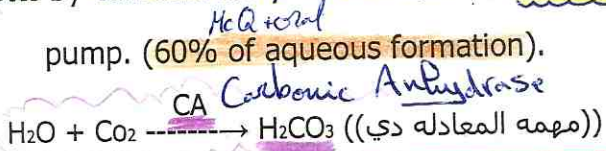 McQ + oral
pump. (60% of aqueous formation).
Carbonic Anhydrase
CA
H2O + Co2 -------→ H2CO3 ((مهمه المعادله دي))